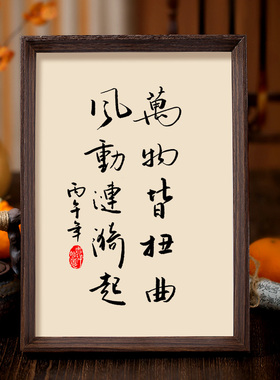 萬物皆扭曲
風動漣漪起
丙午年